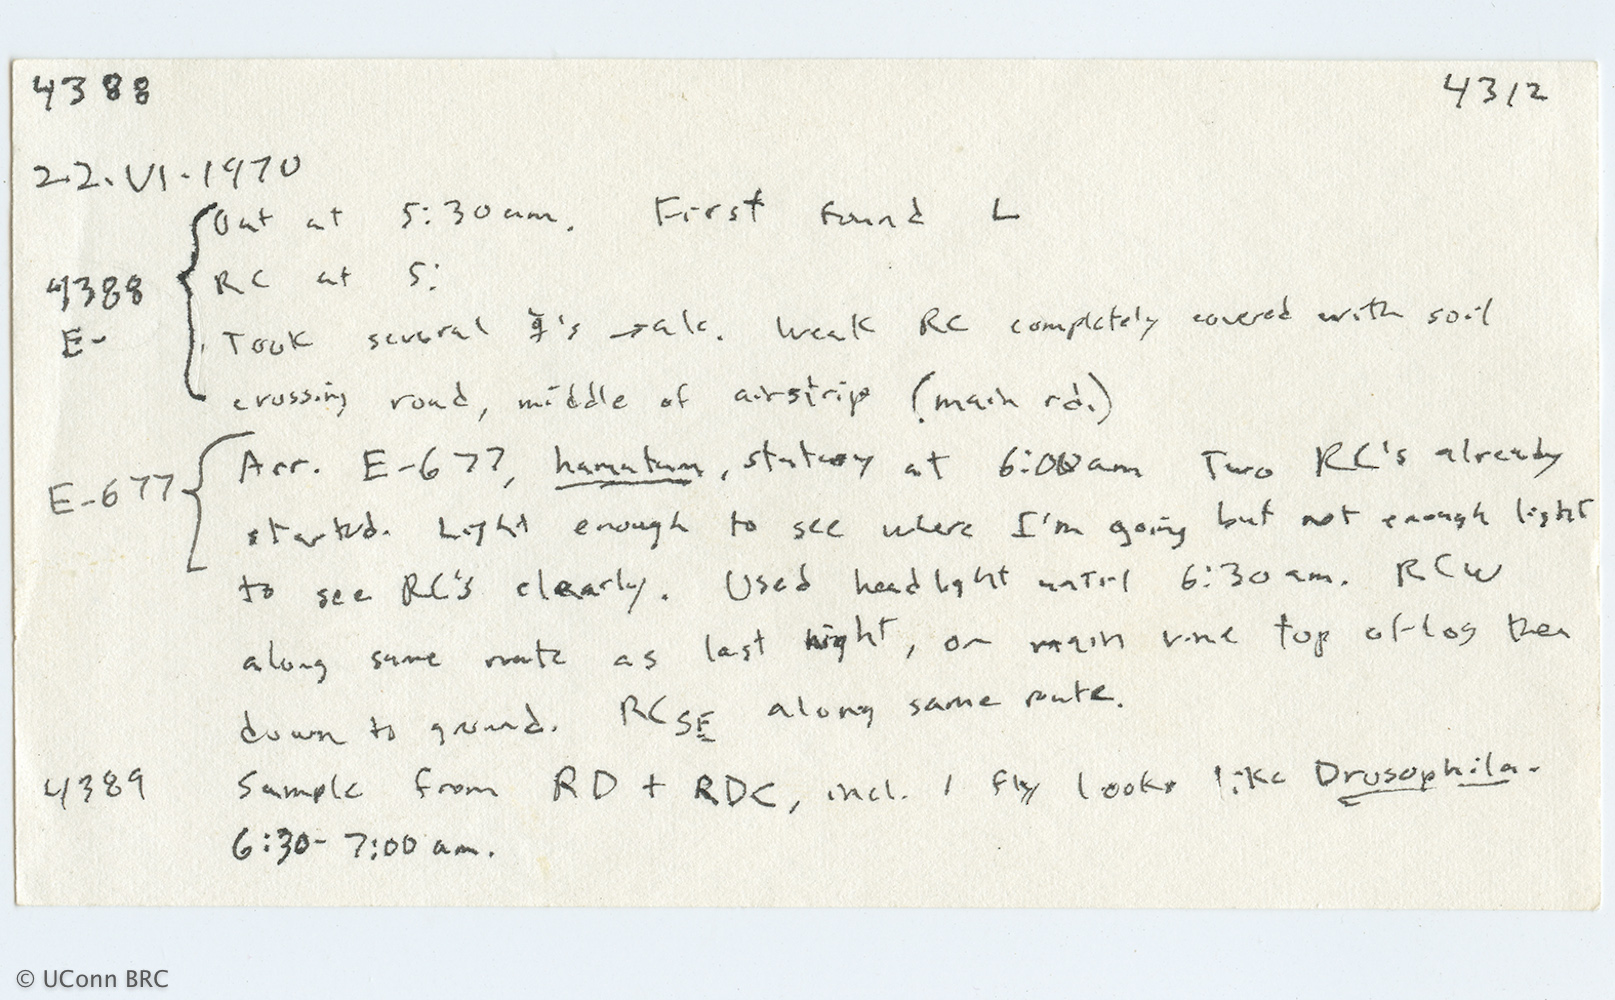 4388 4312
22.VI.1970
Out at 5:30am. First found L
RC at 5:
4388
E-
Took several ☿'s →alc. Weak RC completely covered with soil
crossing road, middle of airstrip (main rd.)
E-677 Arr. E-677, hamatum, statary at 6:00am Two RC's already
started. Light enough to see where I'm going but not enough light
to see RC's clearly. Used headlight until 6:30am. RCW
along same route as last night, on main vine top of log then
down to ground. RCSE along same route.
4389 Sample from RD + RDC, incl. 1 fly looks like Drosophila.
6:30- 7:00 am.
© UConn BRC